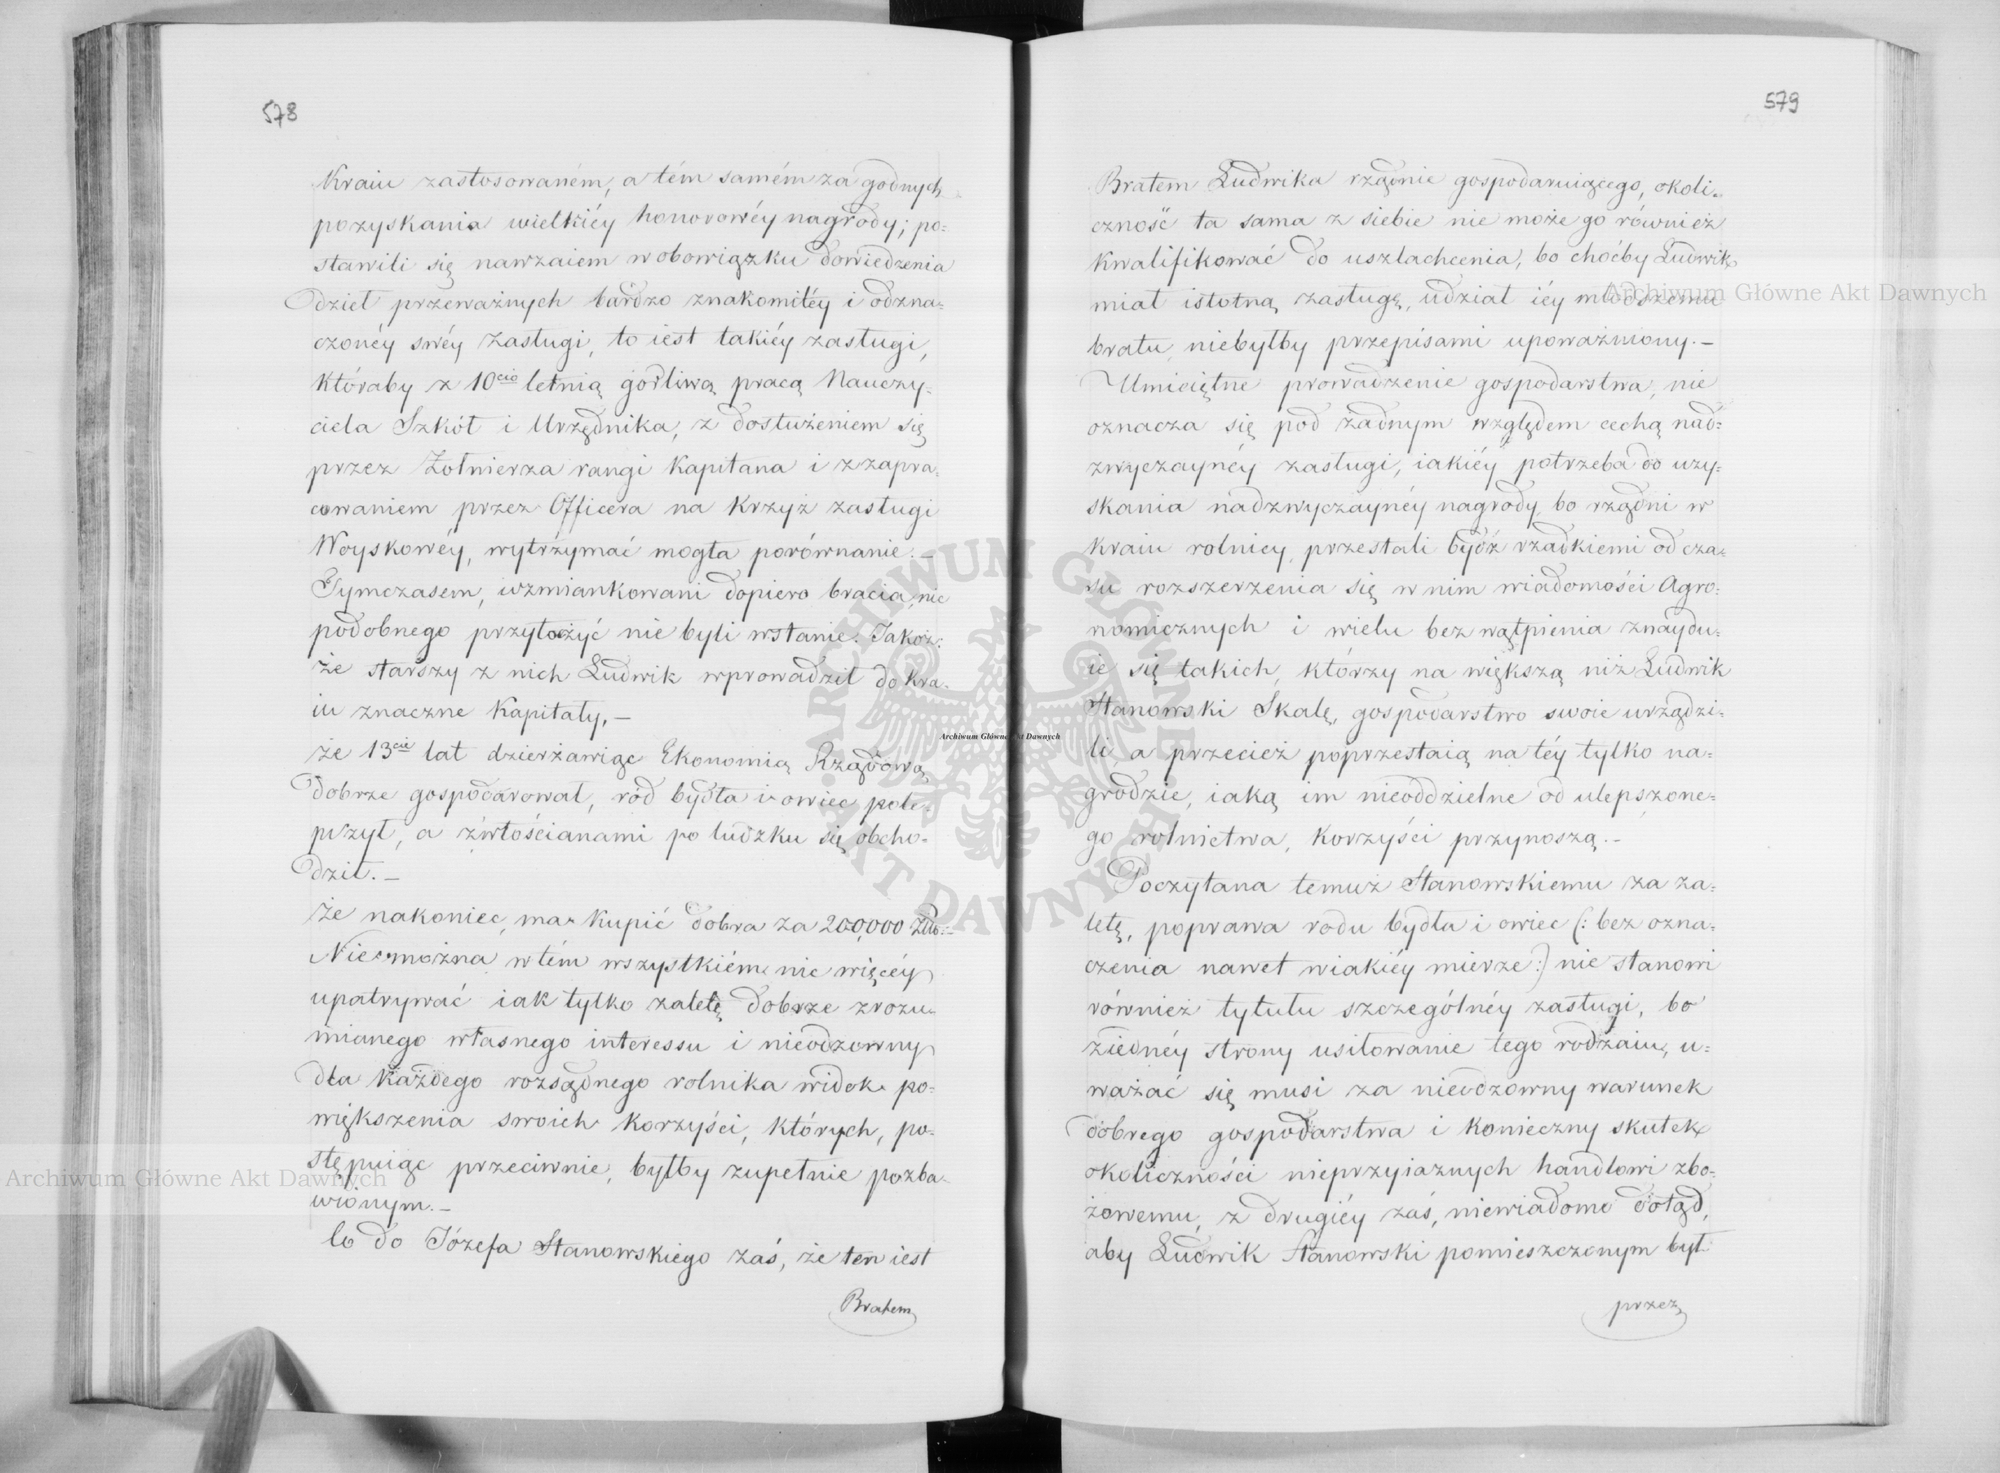 578
Kraiu zastosowaném, a tém samém za godnych
pozyskania wielkiéy honorowéy nagrody; po=
stawili się nawzaiem w obowiązku dowiedzenia
dzieł przeważnych bardzo znakomitéy i odzna=
czonéy swéy zasługi, to iest takiéy zasługi,
któraby z 10cio letnią gorliwą pracą Nauczy=
ciela Szkół i Urzędnika, z dosłużeniem się
przez Żołnierza rangi Kapitana i z zapra=
cowaniem przez Officera na Krzyż zasługi
Woyskowéy, wytrzymać mogła porównanie. —
Tymczasem, wzmiankowani dopiero bracia, nic
podobnego przytoczyć nie byli wstanie. Jakoż:
że starszy z nich Ludwik wprowadził do Kra=
iu znaczne Kapitały, —
że 13cie lat dzierżawiąc Ekonomią Rządową
dobrze gospodarował, ród bydła i owiec pole=
pszył, a zwłościanami po ludzku się obcho=
dził. —
że nakoniec, ma kupić dobra za 200,000 Złło: —
Nie można w tém wszystkiém nic więcéy
upatrywać iak tylko zaletę dobrze zrozu=
mianego własnego interessu i nieodzowny
dla Każdego rozsądnego rolnika widok po=
większenia swoich Korzyści, których, po=
stępuiąc przeciwnie, byłby zupełnie pozba=
wionym. —
Co do Józefa Stanowskiego zaś, że ten iest
Bratem
579
Bratem Ludwika rządnie gospodaruiącego, okoli=
czność ta sama z siebie nie może go również
Kwalifikować do uszlachcenia, bo choćby Ludwik
miał istotną zasługę, udział iéy młodszemu
bratu, niebyłby przepisami upoważniony. —
Umieiętne prowadzenie gospodarstwa, nie
oznacza się pod żadnym względem cechą nad=
zwyczaynéy zasługi, iakiéy potrzeba do uzy=
skania nadzwyczaynéy nagrody, bo rządni w
Kraiu rolnicy, przestali bydź rzadkiemi od cza=
su rozszerzenia się w nim wiadomości Agro=
nomicznych i wielu bez wątpienia znaydu=
ie się takich, którzy na większą niż Ludwik
Stanowski Skalę, gospodarstwo swoie urządzi=
li, a przecież poprzestaią na téy tylko na=
grodzie, iaką im nieoddzielne od ulepszone=
go rolnictwa, Korzyści przynoszą. —
Poczytana temuż Stanowskiemu za za=
letę, poprawa rodu bydła i owiec (: bez ozna=
czenia nawet wiakiéy mierze :) nie stanowi
również tytułu szczególnéy zasługi, bo
ziednéy strony usiłowanie tego rodzaiu, u=
ważać się musi za nieodzowny warunek
dobrego gospodarstwa i konieczny skutek
okoliczności nieprzyiaznych handlowi zbo=
żowemu, z drugiéy zaś, niewiadomo dotąd,
aby Ludwik Stanowski pomieszczonym był
przez
Archiwum Główne Akt Dawnych
Archiwum Główne Akt Dawnych
Archiwum Główne Akt Dawnych
ARCHIWUM GŁÓWNE AKT DAWNYCH